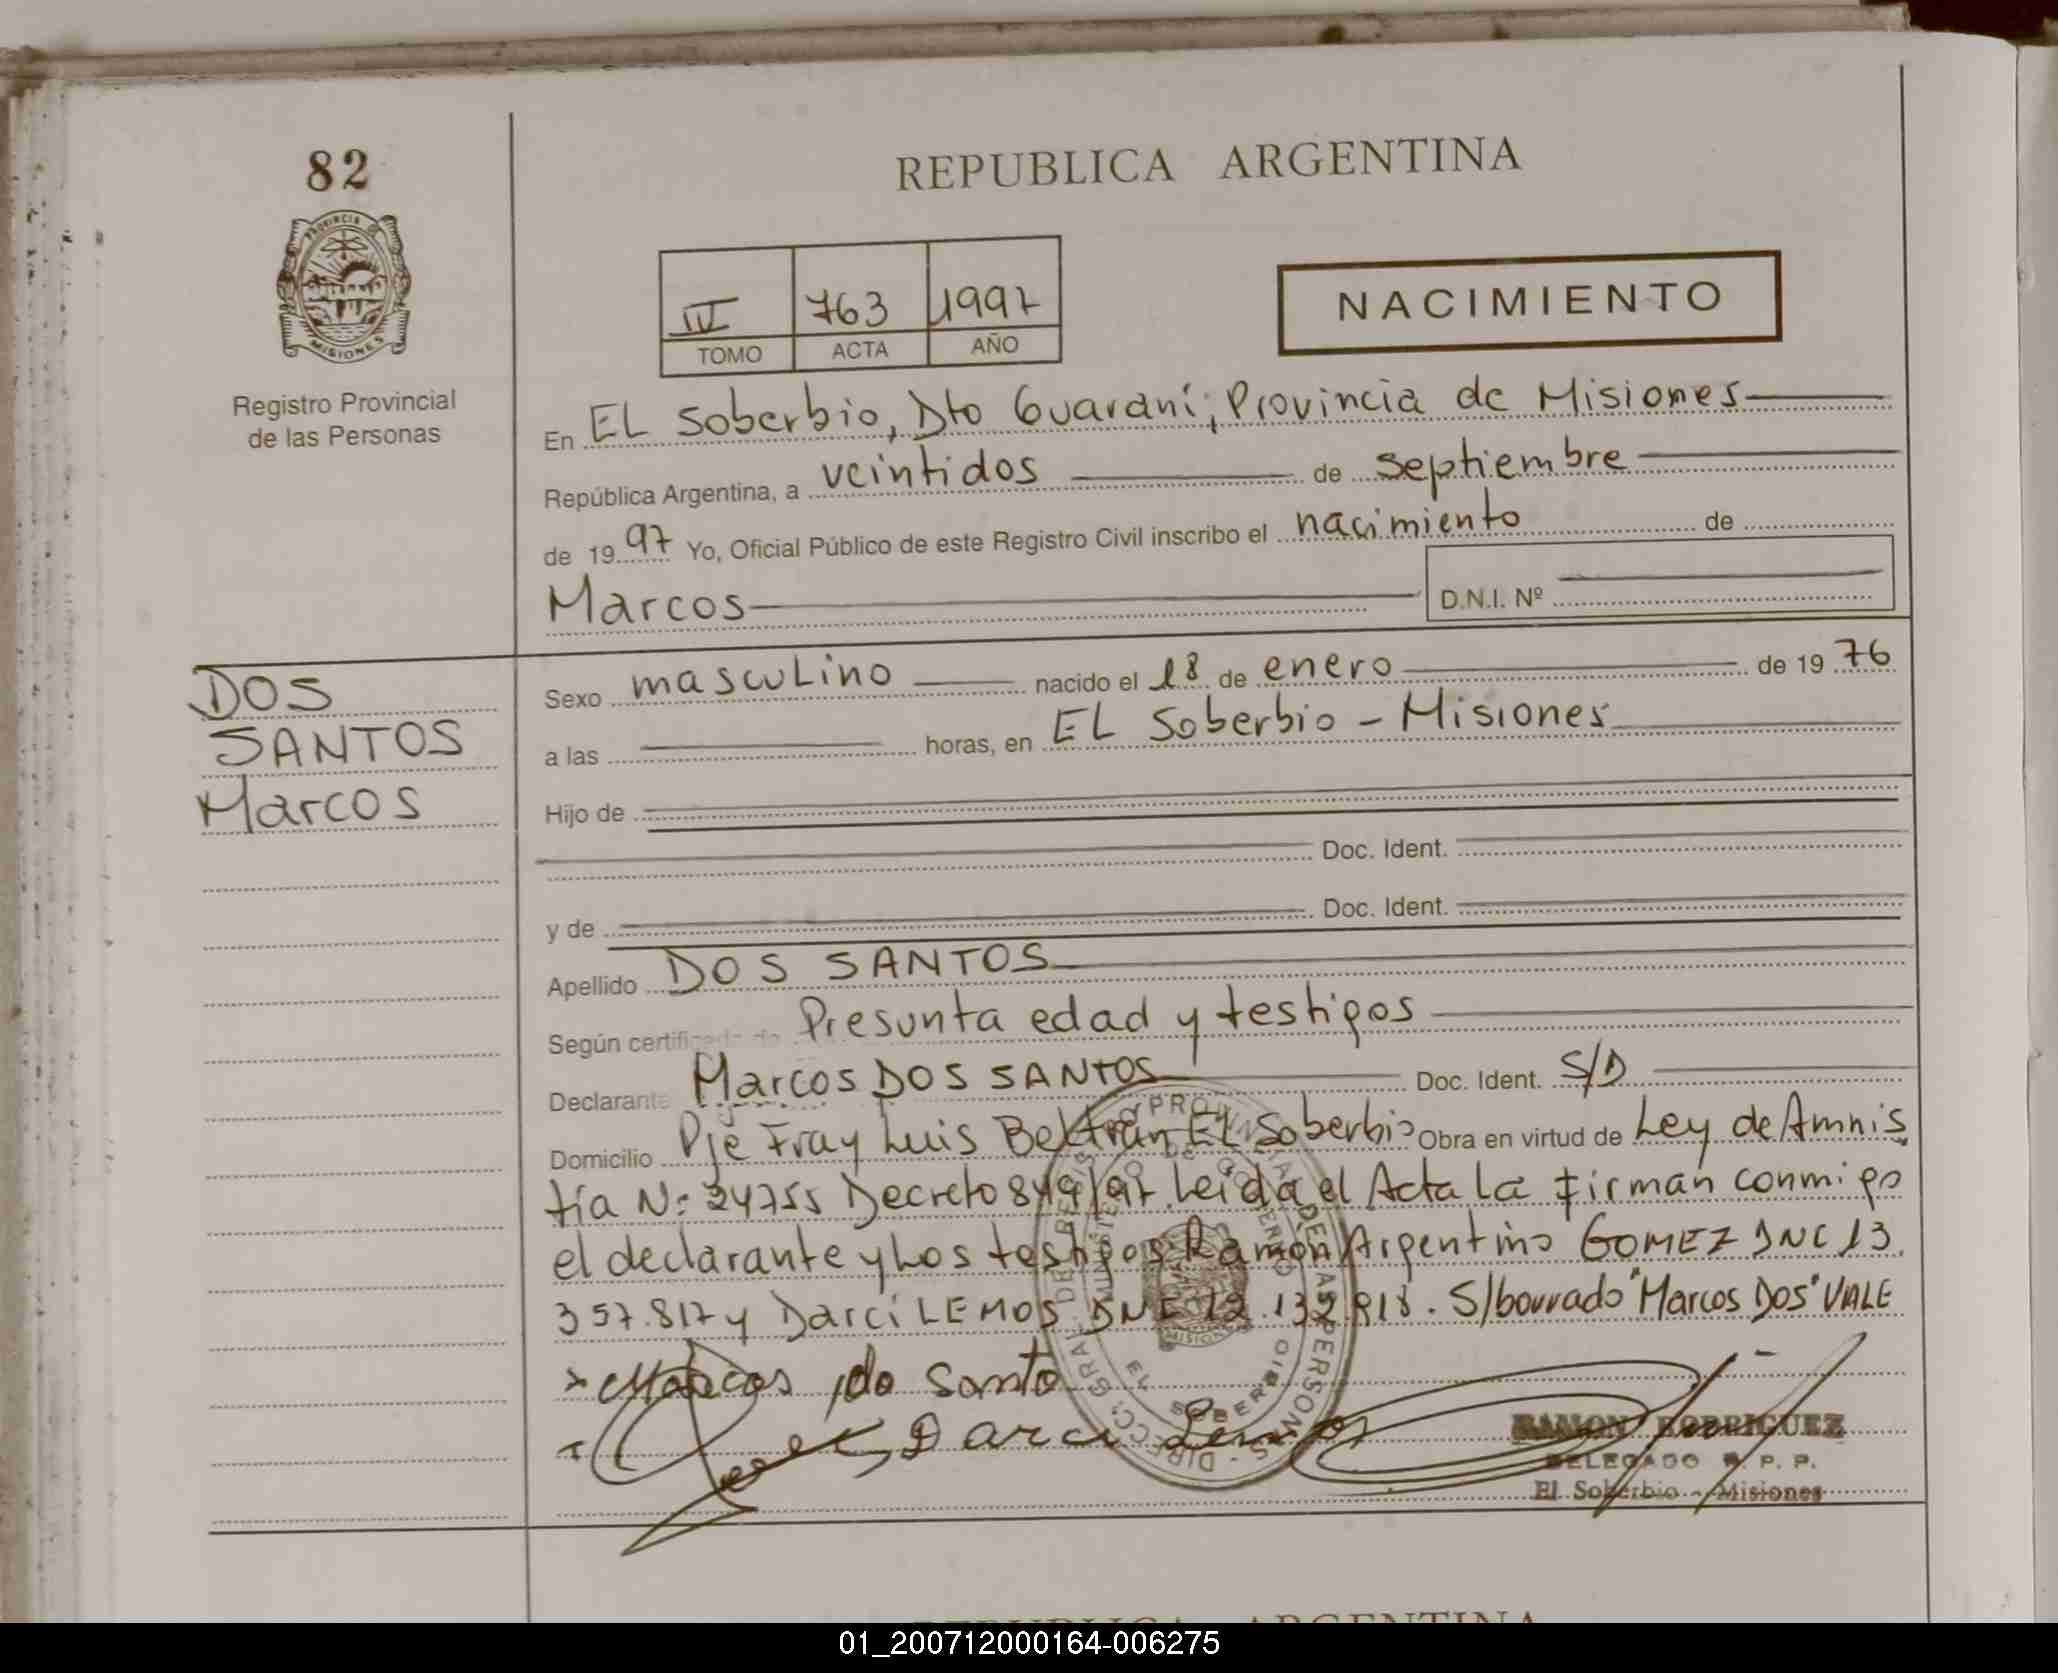 82
REPUBLICA ARGENTINA
PROVINCIA DE
MISIONES
Registro Provincial
de las Personas
IV 763 1997
TOMO ACTA AÑO
NACIMIENTO
En EL Soberbio, Dto Guaraní, Provincia de Misiones
República Argentina, a veintidos de septiembre
de 19 97 Yo, Oficial Público de este Registro Civil inscribo el nacimiento de
Marcos D.N.I. Nº
DOS
SANTOS
Marcos
Sexo masculino nacido el 18 de enero de 19 76
a las horas, en EL Soberbio - Misiones
Hijo de
Doc. Ident.
y de Doc. Ident.
Apellido DOS SANTOS
Según certificado de Presunta edad y testigos
Declarante Marcos DOS SANTOS Doc. Ident. S/D
Domicilio Pje Fray Luis Beltrán EL Soberbio Obra en virtud de Ley de Amnis
tía N: 24755 Decreto 849/97. Leida el Acta La firman conmigo
el declarante y Los testigos Ramón Argentino GOMEZ DNI 13.
357.817 y Darci LEMOS DNI 12.132.918. S/borrado "Marcos Dos" VALE
Marcos do Santo
Darci Lemos
RAMON RODRIGUEZ
DELEGADO R. P. P.
El Soberbio - Misiones
REPUBLICA ARGENTINA
01_200712000164-006275